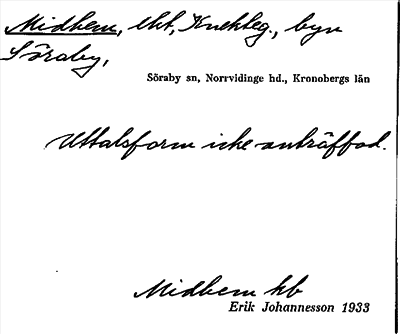 Midhem, tkt, Knekteg., byn
Söraby,
Söraby sn, Norrvidinge hd., Kronobergs län
Uttalsform icke anträffad.
Midhem kb
Erik Johannesson 1933